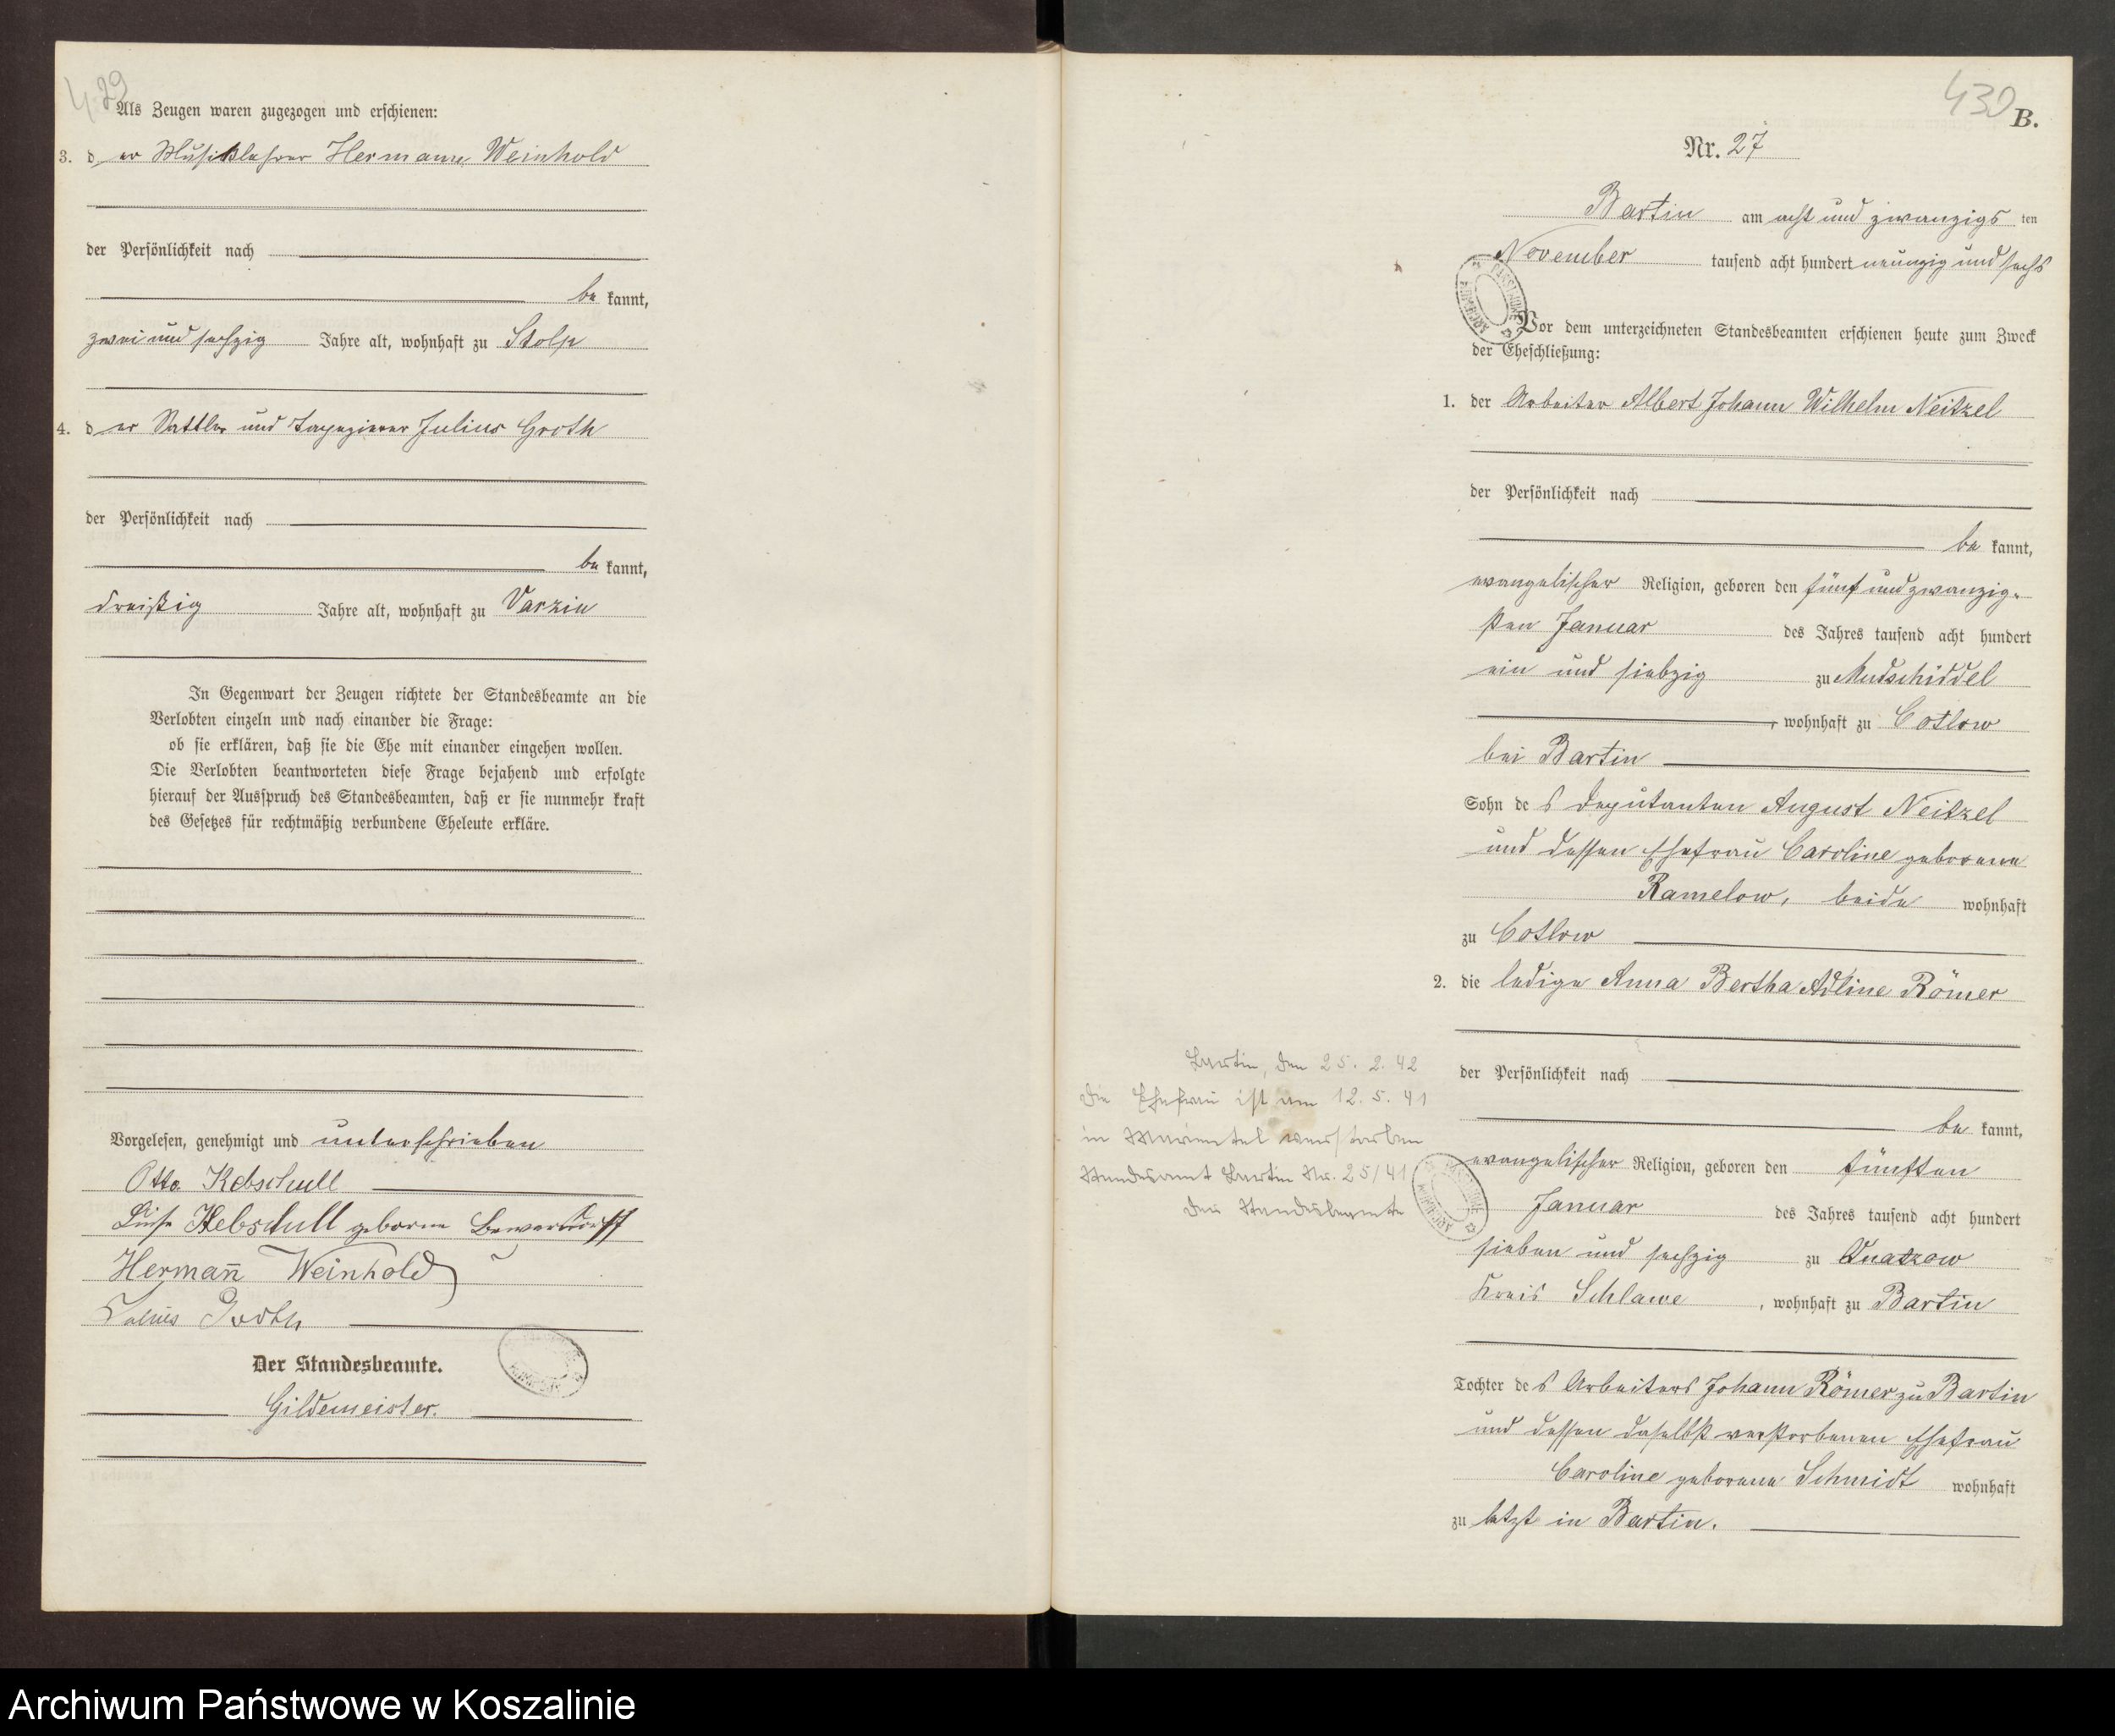 429
Als Zeugen waren zugezogen und erschienen:
3. d er Musiklehrer Hermann Weinhold
der Persönlichkeit nach
be kannt,
zwei und sechzig Jahre alt, wohnhaft zu Stolp
4. d er Sattler und Tapezierer Julius Groth
der Persönlichkeit nach
be kannt,
dreißig Jahre alt, wohnhaft zu Varzin
In Gegenwart der Zeugen richtete der Standesbeamte an die
Verlobten einzeln und nach einander die Frage:
ob sie erklären, daß sie die Ehe mit einander eingehen wollen.
Die Verlobten beantworteten diese Frage bejahend und erfolgte
hierauf der Ausspruch des Standesbeamten, daß er sie nunmehr kraft
des Gesetzes für rechtmäßig verbundene Eheleute erkläre.
Vorgelesen, genehmigt und unterschrieben
Otto Kebschull
Luise Kebschull geborene
Hermann̄ Weinhold
Julius Groth
Der Standesbeamte.
Gildemeister.
430
B.
Nr. 27
Bartin am acht und zwanzigs ten
November tausend acht hundert neunzig und sechs
Vor dem unterzeichneten Standesbeamten erschienen heute zum Zweck
der Eheschließung:
1. der Arbeiter Albert Johann Wilhelm Neitzel
der Persönlichkeit nach
be kannt,
evangelischer Religion, geboren den fünf und zwanzig-
sten Januar des Jahres tausend acht hundert
ein und siebzig zu Mudschiddel
, wohnhaft zu Cotlow
bei Bartin
Sohn de s Deputanten August Neitzel
und dessen Ehefrau Caroline geborene
Ramelow, beide wohnhaft
zu Cotlow
2. die ledige Anna Bertha Adline Römer
der Persönlichkeit nach
be kannt,
evangelischer Religion, geboren den fünften
Januar des Jahres tausend acht hundert
sieben und sechzig zu Quatzow
Kreis Schlawe , wohnhaft zu Bartin
Tochter de s Arbeiters Johann Römer zu Bartin
und dessen daselbst verstorbenen Ehefrau
Caroline geborene Schmidt wohnhaft
zu letzt in Bartin.
Bartin, den 25. 2. 42
Die Ehefrau ist am 12. 5. 41
in Mariental verstorben
Standesamt Bartin Nr. 25/41
Der Standesbeamte
Archiwum Państwowe w Koszalinie